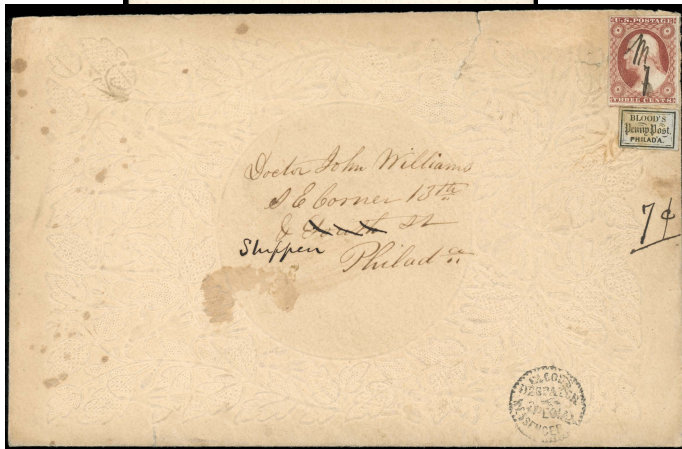 U.S. POSTAGE
THREE CENTS
BLOOD'S
Penny Post.
PHILAD'A.
Doctor John Williams
S E Corner 13th
& South St
Shippen
Philada
7¢
BLOOD'S
DESPATCH
SPECIAL
MESSENGER